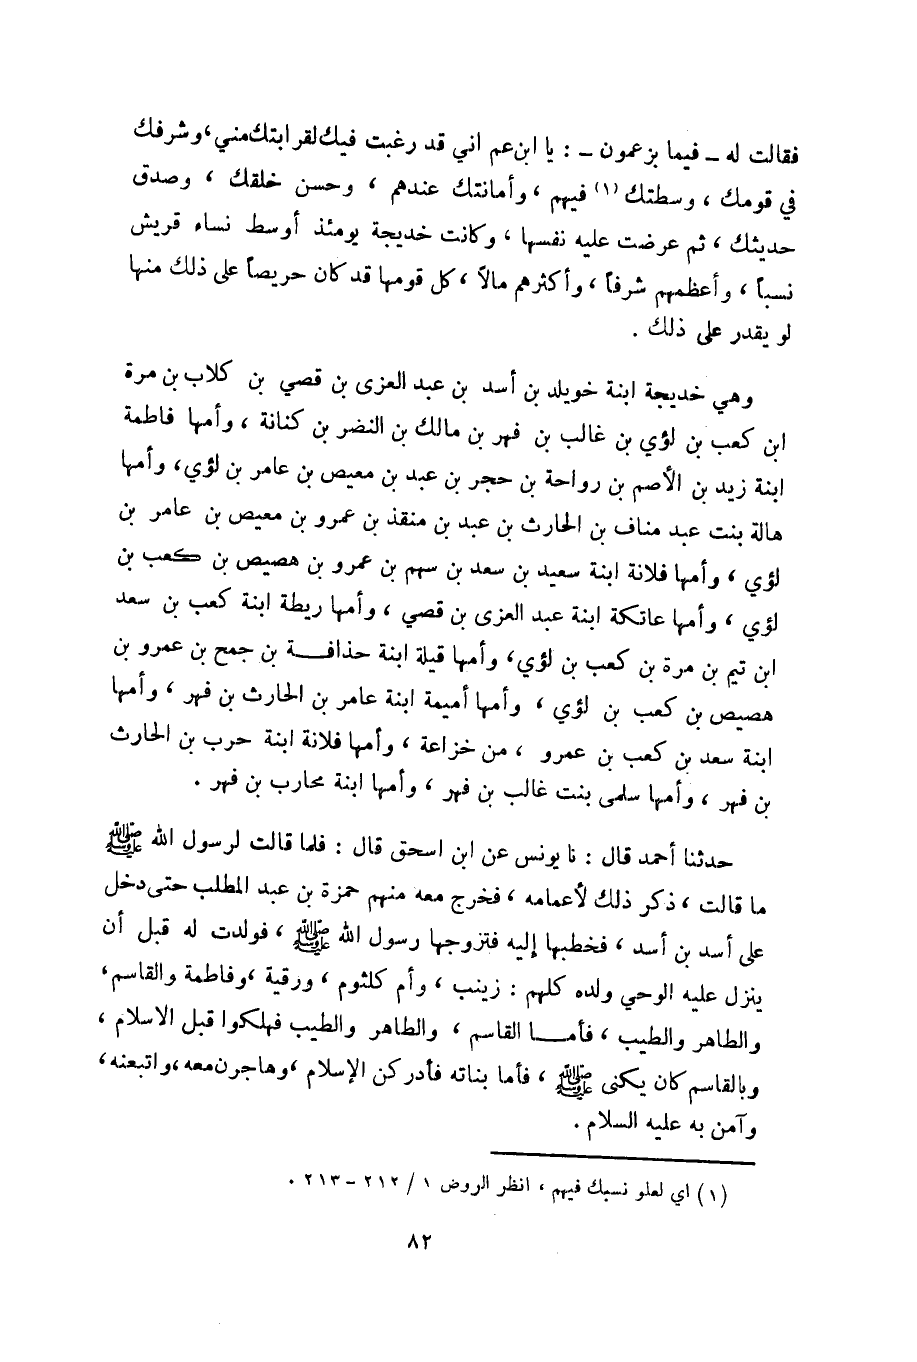 فقالت له ـ فيما يزعمون ـ : يا ابن عم اني قد رغبت فيك لقرابتك مني ، وشرفك
في قومك ، وسطتك (١) فيهم ، وأمانتك عندهم ، وحسن خلقك ، وصدق
حديثك ، ثم عرضت عليه نفسها ، وكانت خديجة يومئذ أوسط نساء قريش
نسباً ، وأعظمهم شرفاً ، وأكثرهم مالاً ، كل قومها قد كان حريصاً على ذلك منها
لو يقدر على ذلك .
وهي خديجة ابنة خويلد بن أسد بن عبد العزى بن قصي بن كلاب بن مرة
ابن كعب بن لؤي بن غالب بن فهر بن مالك بن النضر بن كنانة ، وأمها فاطمة
ابنة زيد بن الأصم بن رواحة بن حجر بن عبد بن معيص بن عامر بن لؤي ، وأمها
هالة بنت عبد مناف بن الحارث بن عبد بن منقذ بن عمرو بن معيص بن عامر بن
لؤي ، وأمها فلانة ابنة سعيد بن سعد بن سهم بن عمرو بن هصيص بن كعب بن
لؤي ، وأمها عاتكة ابنة عبد العزى بن قصي ، وأمها ريطة ابنة كعب بن سعد
ابن تيم بن مرة بن كعب بن لؤي ، وأمها قيلة ابنة حذافة بن جمح بن عمرو بن
هصيص بن كعب بن لؤي ، وأمها أميمة ابنة عامر بن الحارث بن فهر ، وأمها
ابنة سعد بن كعب بن عمرو ، من خزاعة ، وأمها فلانة ابنة حرب بن الحارث
بن فهر ، وأمها سلمى بنت غالب بن فهر ، وأمها ابنة محارب بن فهر .
حدثنا أحمد قال : نا يونس عن ابن اسحق قال : فلما قالت لرسول الله ﷺ
ما قالت ، ذكر ذلك لأعمامه ، فخرج معه منهم حمزة بن عبد المطلب حتى دخل
على أسد بن أسد ، فخطبها إليه فتزوجها رسول الله ﷺ ، فولدت له قبل أن
ينزل عليه الوحي ولده كلهم : زينب ، وأم كلثوم ، ورقية ، وفاطمة والقاسم ،
والطاهر والطيب ، فأما القاسم ، والطاهر والطيب فهلكوا قبل الاسلام ،
وبالقاسم كان يكنى ﷺ ، فأما بناته فأدركن الإسلام ، وهاجرن معه ، واتبعنه ،
وآمن به عليه السلام .
(١) اي لعلو نسبك فيهم ، انظر الروض ١ / ٢١٢ – ٢١٣ .
٨٢